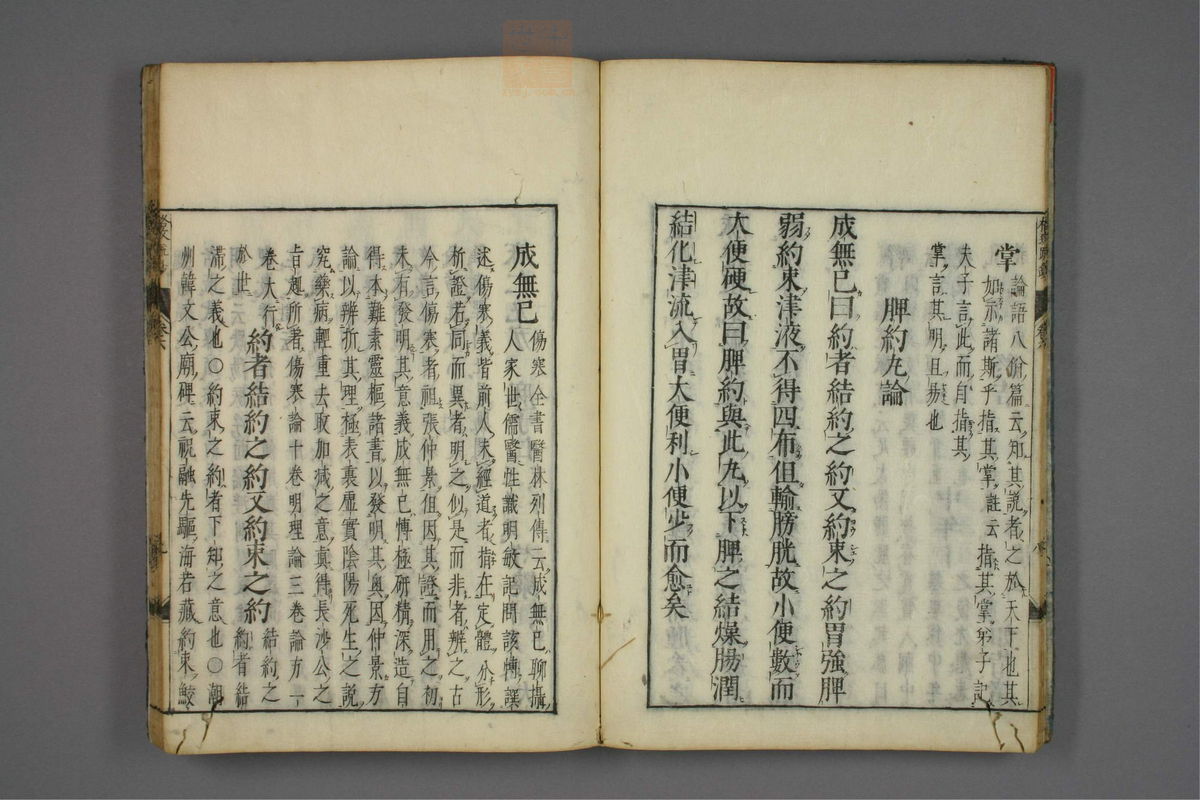 掌 論語八佾篇云知其說者之於天下也其
如示諸斯乎指其掌註云指其掌弟子記
夫子言此而自指其
掌言其明且易也
脾約丸論
成無己曰約者結約之約又約束之約胃強脾
弱約束津液不得四布但輸膀胱故小便數而
大便硬故曰脾約與此丸以下脾之結燥腸潤
結化津流入胃大便利小便少而愈矣
成無已 傷寒全書醫林列傳云成無已聊攝
人家世儒醫性識明敏記問該博譔
述傷寒義皆前人未經道者指在定體分形
析證若同而異者明之似是而非者辨之古
今言傷寒者祖張仲景但因其證而用之初
未有發明其意義成無已博極研精深造自
得本難素靈樞諸書以發明其奧因仲景方
論以辨析其理極表裏虛實陰陽死生之說
究藥病輕重去取加減之意真得長沙公之
旨趣所著傷寒論十卷明理論三卷論方一
卷大行
於世 約者結約之約又約束之約 結約之
約者結
滯之義也○約束之約者下知之意也○潮
州韓文公廟碑云祝融先驅海若藏約束鮫